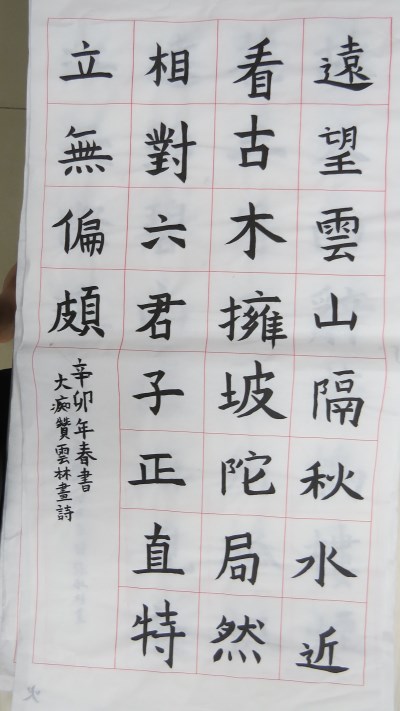 遠望雲山隔秋水近
看古木擁坡陀局然
相對六君子正直特
立無偏頗
辛卯年春書
大癡贊雲林畫詩